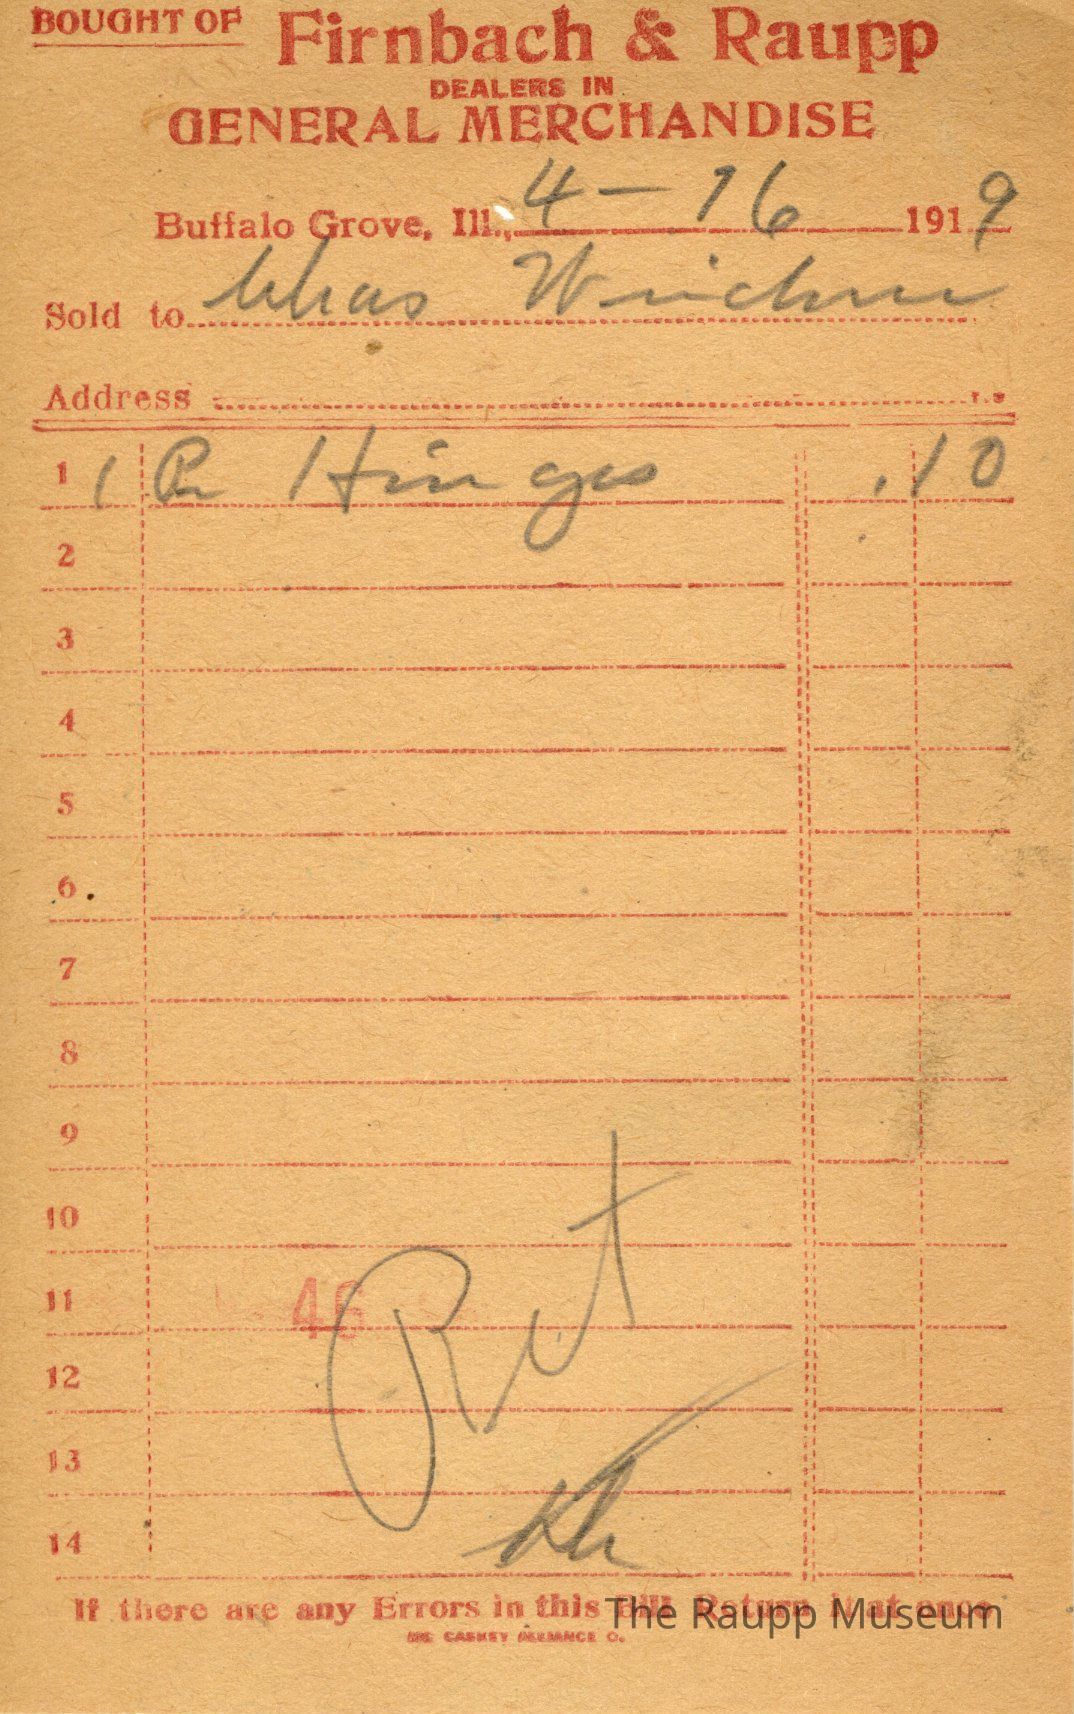 BOUGHT OF Firnbach & Raupp
DEALERS IN
GENERAL MERCHANDISE
Buffalo Grove, Ill., 4 - 16 1919
Sold to Chas
Address
1 1 Pr Hinges .10
2
3
4
5
6
7
8
9
10
11 46
12
13
14
If there are any Errors in this Bill Return it at once
The Raupp Museum